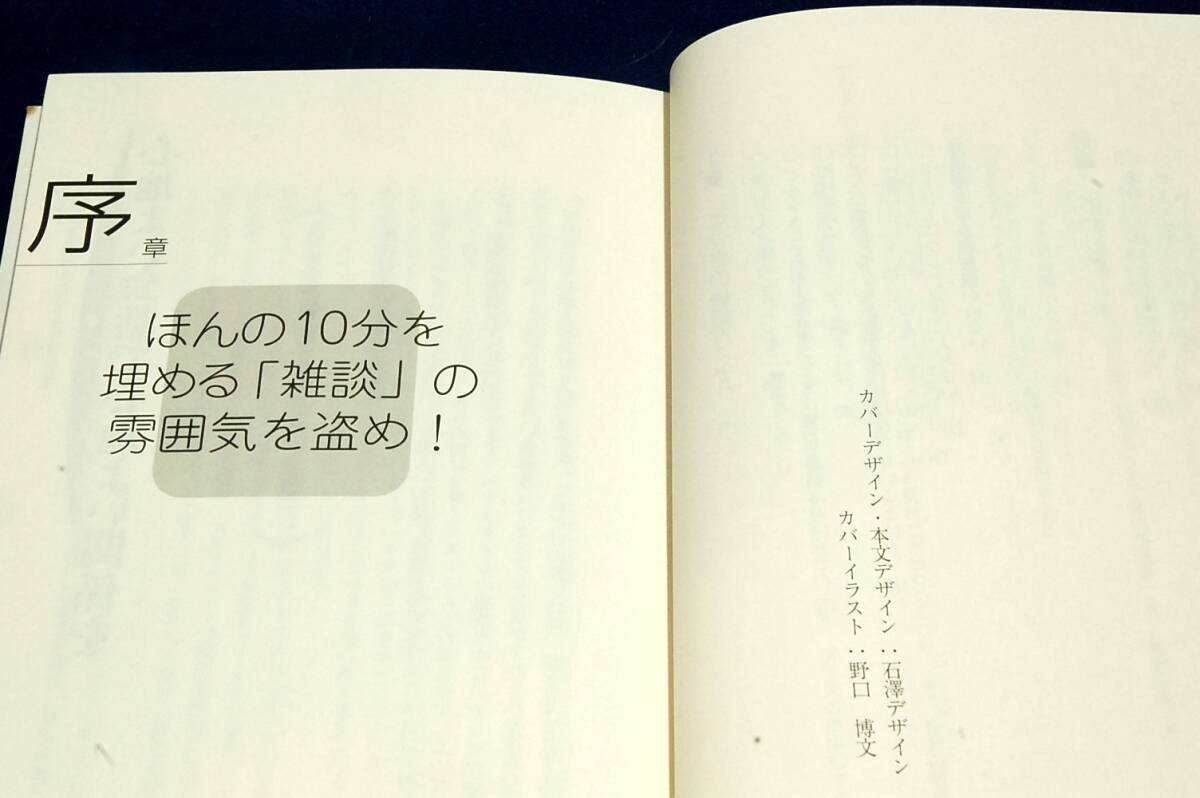 カバーデザイン・本文デザイン：石澤デザイン
カバーイラスト：野口　博文
序章
ほんの10分を
埋める「雑談」の
雰囲気を盗め！